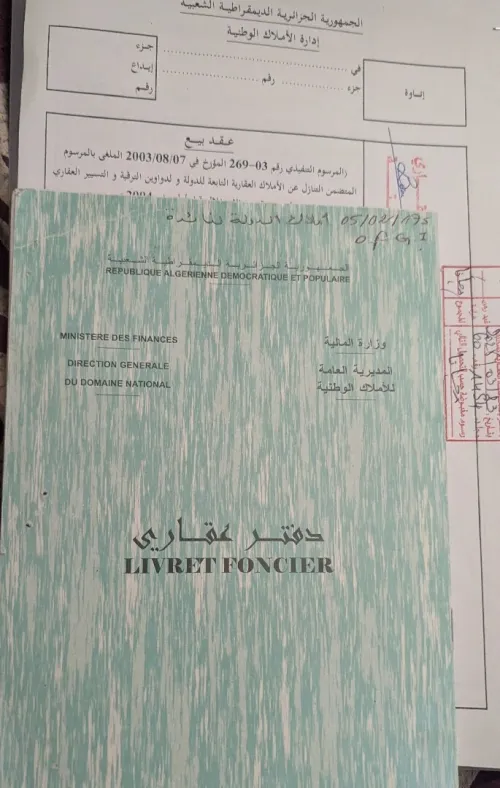 الجمهورية الجزائرية الديمقراطية الشعبية
إدارة الأملاك الوطنية
جزء
إيداع
رقم
في
جزء رقم
إتاوة
عقد بيع
(المرسوم التنفيذي رقم 03-269 المؤرخ في 2003/08/07 الملغى بالمرسوم
المتضمن التنازل عن الأملاك العقارية التابعة للدولة و لدواوين الترقية و التسيير العقاري
2004
05/02/175 أملاك الدولة
O.P.G.I
الجمهورية الجزائرية الديمقراطية الشعبية
REPUBLIQUE ALGERIENNE DEMOCRATIQUE ET POPULAIRE
MINISTERE DES FINANCES
وزارة المالية
DIRECTION GENERALE
المديرية العامة
DU DOMAINE NATIONAL
للأملاك الوطنية
دفتر عقاري
LIVRET FONCIER